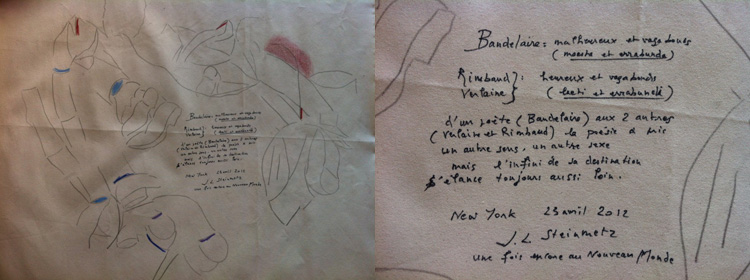 Baudelaire : malheureux et vagabonds
(moesta et errabunda)
Rimbaud } : heureux et vagabonds
Verlaine } (laeti et errabundi)
d'un poète (Baudelaire) aux 2 autres
(Verlaine et Rimbaud) la poésie a pris
un autre sens, un autre sexe
mais l'infini de sa destination
s'élance toujours aussi loin.
New York 23 avril 2012
J.L. Steinmetz
une fois encore au Nouveau Monde